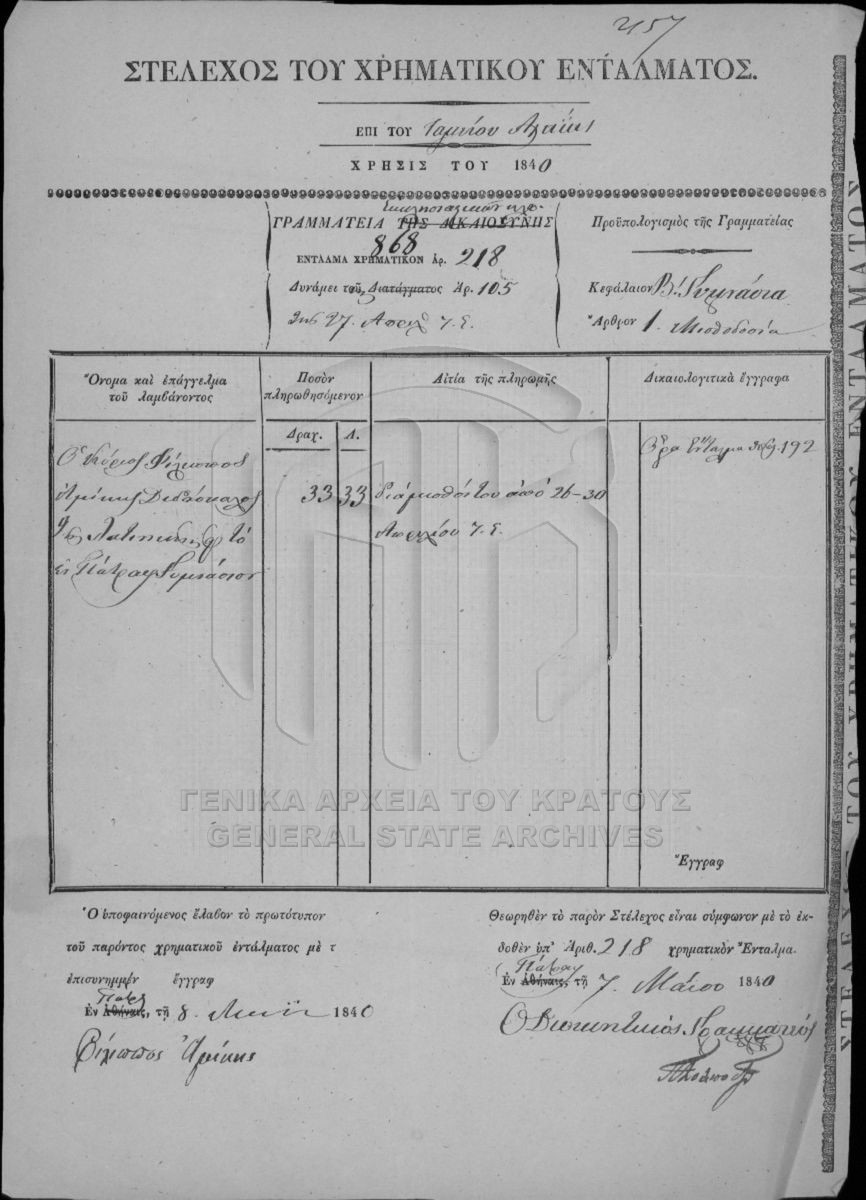 257
ΣΤΕΛΕΧΟΣ ΤΟΥ ΧΡΗΜΑΤΙΚΟΥ ΕΝΤΑΛΜΑΤΟΣ.
ΕΠΙ ΤΟΥ Ταμείου
ΧΡΗΣΙΣ ΤΟΥ 1840
Ἐκκλησιαστικῶν κλπ.
ΓΡΑΜΜΑΤΕΙΑ ΤΗΣ ΔΙΚΑΙΟΣΥΝΗΣ
868
ΕΝΤΑΛΜΑ ΧΡΗΜΑΤΙΚΟΝ Ἀρ. 218
Δυνάμει τοῦ Διατάγματος Ἀρ. 105
27. Ἀπριλ
Προϋπολογισμὸς τῆς Γραμματείας
Κεφάλαιον Β! Γυμνάσια
Ἄρθρον 1. Μισθοδοσία
Ὄνομα καὶ ἐπάγγελμα
τοῦ λαμβάνοντος
Ποσὸν
πληρωθησόμενον
Αἰτία τῆς πληρωμῆς
Δικαιολογιτικὰ ἔγγραφα
Δραχ. Λ.
192
Ὁ Κύριος Φίλιππος
Διδάσκαλος 33 33 διὰ μισθόν του ἀπὸ 26-30
τῆς Λατινικῆς τὸ Ἀπριλίου
ἐν Πάτραις Γυμνάσιον
ΓΕΝΙΚΑ ΑΡΧΕΙΑ ΤΟΥ ΚΡΑΤΟΥΣ
GENERAL STATE ARCHIVES
Ἔγγραφ
Ὁ ὑποφαινόμενος ἔλαβον τὸ πρωτότυπον
τοῦ παρόντος χρηματικοῦ ἐντάλματος μὲ τ
ἐπισυνημμέν ἔγγραφ
Ἐν Ἀθήναις, τῇ 8. 1840
Φίλιππος
Θεωρηθὲν τὸ παρὸν Στέλεχος εἶναι σύμφωνον μὲ τὸ ἐκ-
δοθὲν ὑπ' Ἀριθ. 218 χρηματικὸν Ἔνταλμα.
Πάτραις
Ἐν Ἀθήναις, τῇ 7. Μαΐου 1840
Ὁ Διοικητικὸς
ΣΤΕΛΕΧΟΣ ΤΟΥ ΧΡΗΜΑΤΙΚΟΥ ΕΝΤΑΛΜΑΤΟΣ